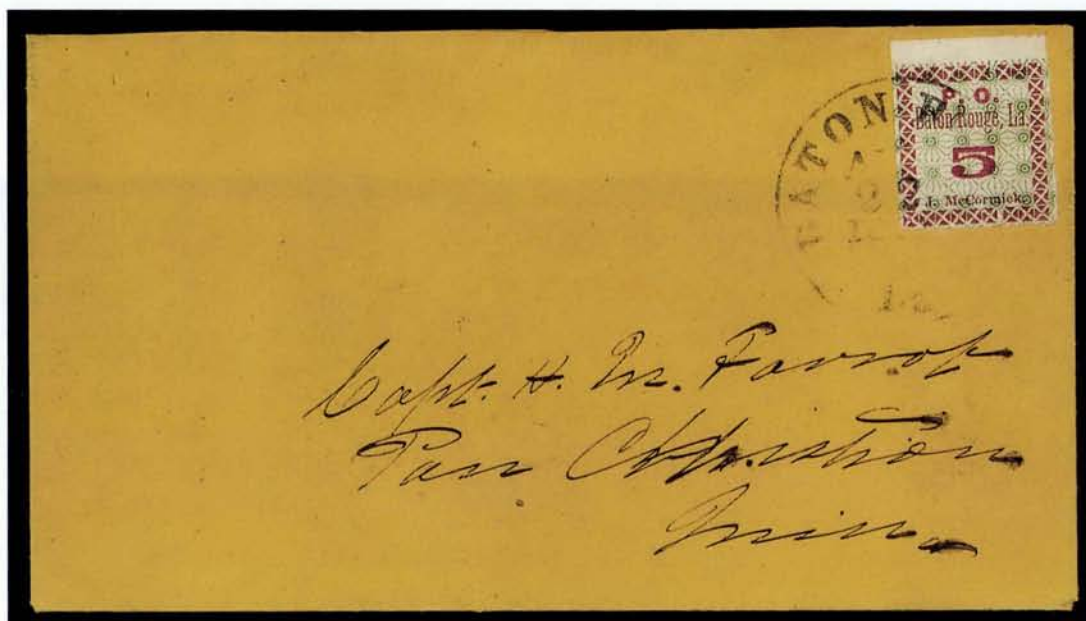 P. O.
Baton Rouge, La.
5
J. McCormick
BATON R
Capt. H. M. Favrot
Pass Christian
Miss.